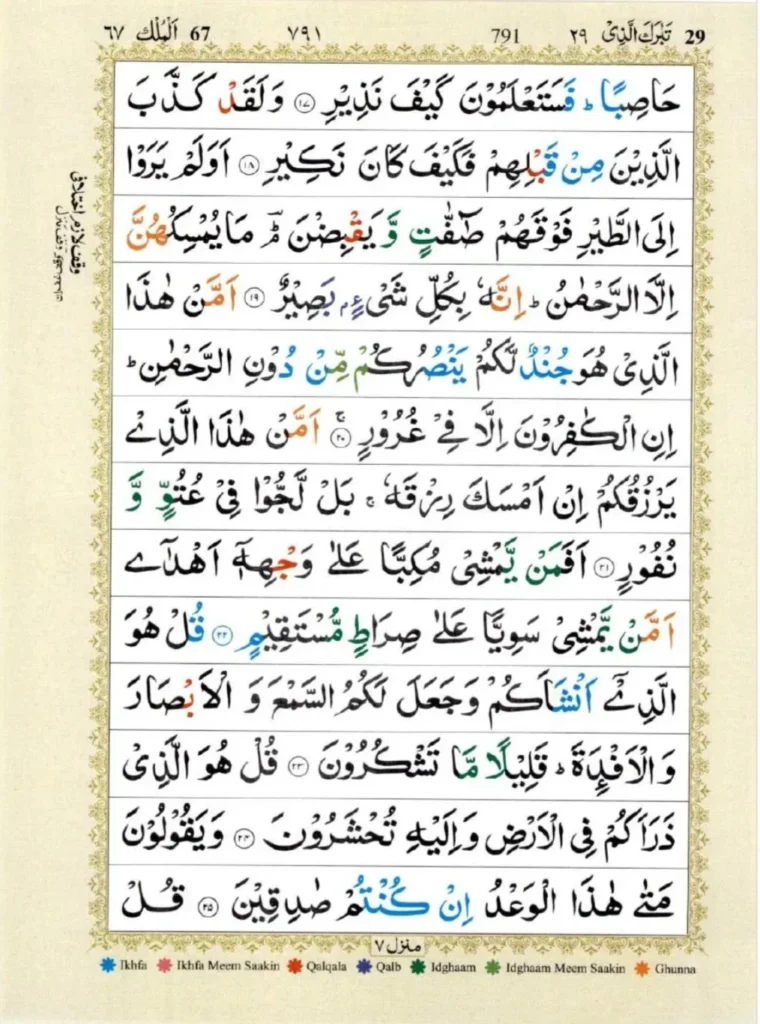 29 تَبٰرَكَ الَّذِیْ ٢٩ 791 ٧٩١ 67 اَلْمُلْك ٦٧
حَاصِبًا ؕ فَسَتَعْلَمُوْنَ كَیْفَ نَذِیْرِ ﴿۱۷﴾ وَلَقَدْ كَذَّبَ
الَّذِیْنَ مِنْ قَبْلِهِمْ فَكَیْفَ كَانَ نَكِیْرِ ﴿۱۸﴾ اَوَلَمْ یَرَوْا
اِلَی الطَّیْرِ فَوْقَهُمْ صٰٓفّٰتٍ وَّ یَقْبِضْنَ ؔۘ مَا یُمْسِكُهُنَّ
اِلَّا الرَّحْمٰنُ ؕ اِنَّهٗ بِكُلِّ شَیْءٍۭ بَصِیْرٌ ﴿۱۹﴾ اَمَّنْ هٰذَا
الَّذِیْ هُوَ جُنْدٌ لَّكُمْ یَنْصُرُكُمْ مِّنْ دُوْنِ الرَّحْمٰنِ ؕ
اِنِ الْكٰفِرُوْنَ اِلَّا فِیْ غُرُوْرٍ ﴿۲۰﴾ۚ اَمَّنْ هٰذَا الَّذِیْ
یَرْزُقُكُمْ اِنْ اَمْسَكَ رِزْقَهٗ ۚ بَلْ لَّجُّوْا فِیْ عُتُوٍّ وَّ
نُفُوْرٍ ﴿۲۱﴾ اَفَمَنْ یَّمْشِیْ مُكِبًّا عَلٰی وَجْهِهٖۤ اَهْدٰۤی
اَمَّنْ یَّمْشِیْ سَوِیًّا عَلٰی صِرَاطٍ مُّسْتَقِیْمٍ ﴿۲۲﴾ قُلْ هُوَ
الَّذِیْۤ اَنْشَاَكُمْ وَجَعَلَ لَكُمُ السَّمْعَ وَ الْاَبْصَارَ
وَالْاَفْـِٕدَةَ ؕ قَلِیْلًا مَّا تَشْكُرُوْنَ ﴿۲۳﴾ قُلْ هُوَ الَّذِیْ
ذَرَاَكُمْ فِی الْاَرْضِ وَاِلَیْهِ تُحْشَرُوْنَ ﴿۲۴﴾ وَیَقُوْلُوْنَ
مَتٰی هٰذَا الْوَعْدُ اِنْ كُنْتُمْ صٰدِقِیْنَ ﴿۲۵﴾ قُلْ
منزل ٧
Ikhfa Ikhfa Meem Saakin Qalqala Qalb Idghaam Idghaam Meem Saakin Ghunna
وقف لازم اختلافی